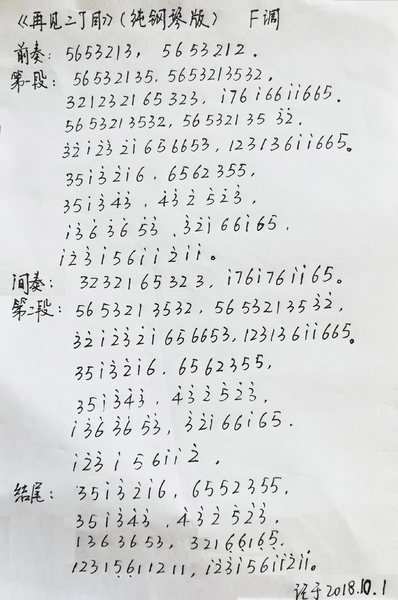 《再见二丁目》(纯钢琴版) F调
前奏: 5653213, 5653212.
第一段: 56532135, 5653213532.
321232165323, i76i66ii665.
5653213532, 5653213532̇.
3̇2̇i2̇3̇2̇i656653, 123136ii665。
35i3̇2̇i6, 6562355,
35i3̇4̇3̇, 4̇3̇2̇52̇3̇,
i3̇63̇653̇, 3̇2̇i66i65,
i2̇3̇i56ii2̇ii。
间奏: 3232165323, i76i76ii65。
第二段: 5653213532, 565321353̇2̇,
3̇2̇i2̇3̇2̇i656653, 123136ii665。
35i3̇2̇i6, 6562355,
35i3̇4̇3̇, 4̇3̇2̇52̇3̇,
i3̇63̇653̇, 3̇2̇i66i65.
i2̇3̇i56ii2̇.
结尾: 35i3̇2̇i6, 6552355,
35i3̇4̇3̇, 4̇3̇2̇52̇3̇.
1363653, 3216̣6̣16̣5̣.
12315̣6̣11211, i2̇3̇i56ii2̇ii。
记于2018.10.1